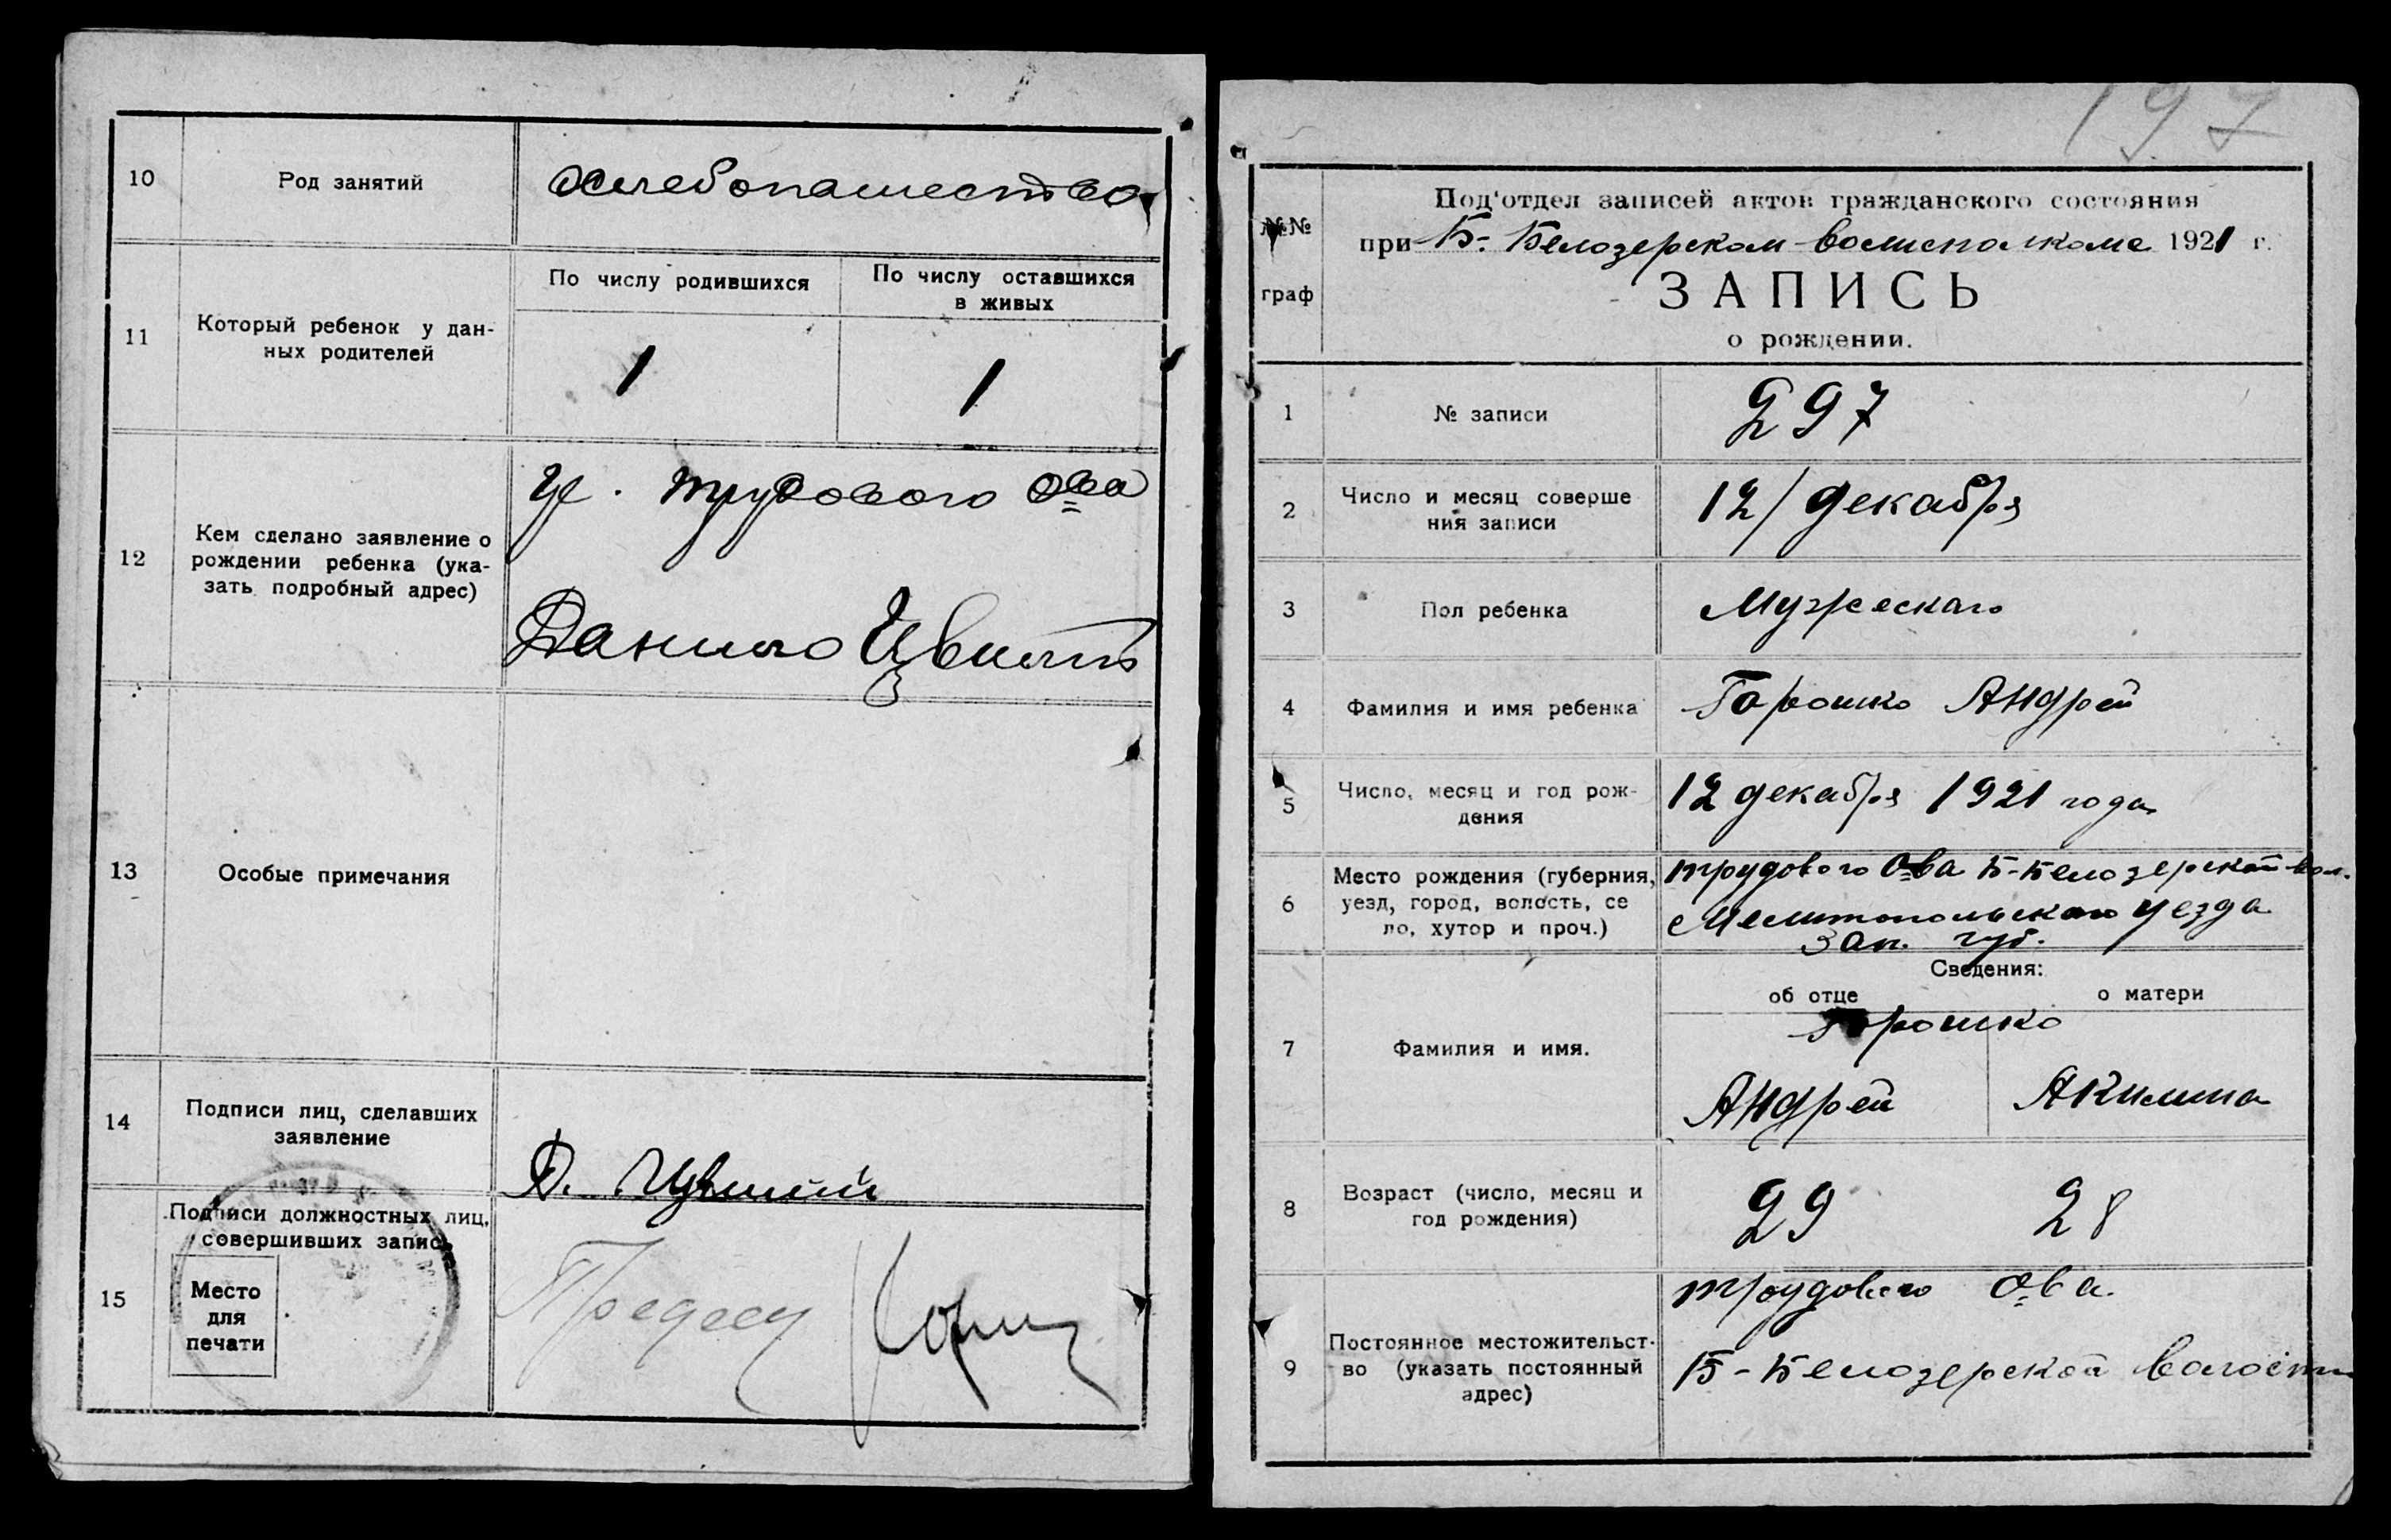 10
Род занятий
хлебопашество
11
Который ребенок у дан-
ных родителей
По числу родившихся
По числу оставшихся
в живых
1
1
12
Кем сделано заявление о
рождении ребенка (ука-
зать подробный адрес)
трудового о-ва
Данило Цвилый
13
Особые примечания
14
Подписи лиц, сделавших
заявление
Д.
15
Подписи должностных лиц,
совершивших запись
Место
для
печати
197
№№
граф
Под‘отдел записей актов гражданского состояния
при Б-Белозерском волисполкоме 1921 г.
ЗАПИСЬ
о рождении.
1
№ записи
297
2
Число и месяц соверше
ния записи
12/декабря
3
Пол ребенка
Мужескаго
4
Фамилия и имя ребенка
Горошко Андрей
5
Число, месяц и год рож-
дения
12 декабря 1921 года
6
Место рождения (губерния,
уезд, город, волость, се
ло, хутор и проч.)
трудового О-ва Б-Белозерской вол.
Мелитопольского уезда
Зап. губ.
Сведения:
об отце
о матери
7
Фамилия и имя.
Горошко
Андрей
Акилина
8
Возраст (число, месяц и
год рождения)
29
28
9
Постоянное местожительст-
во (указать постоянный
адрес)
трудового о-ва.
Б-Белозерской волости